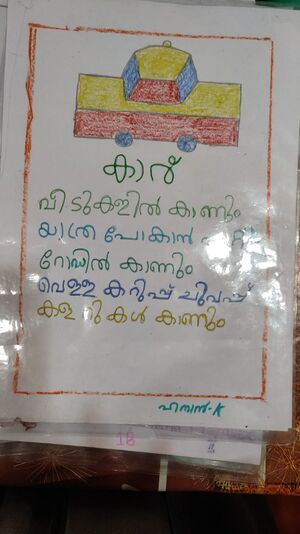 കാറ്
വീടുകളിൽ കാണും
യാത്ര പോകാൻ
റോഡിൽ കാണും
വെള്ള കറുപ്പ് ചുവപ്പ്
കളറുകൾ കാണും
ഹസൻ-K
18